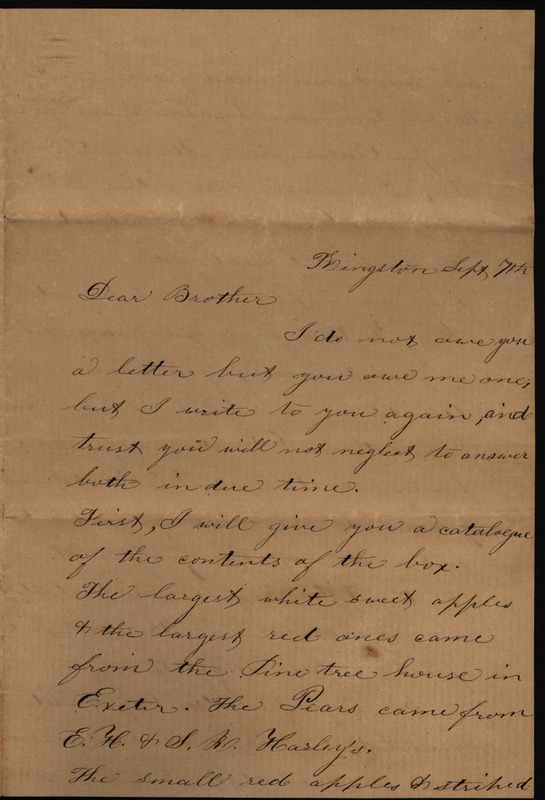 Kingston Sept 7th
Dear Brother
I do not owe you
a letter but you owe me one,
but I write to you again, and
trust you will not neglect to answer
both in due time.
First, I will give you a catalogue
of the contents of the box.
The largest white sweet apples
& the largest red ones came
from the Pine tree house in
Exeter. The Pears came from
E. H. & S. K. Harley's.
The small red apples & striped